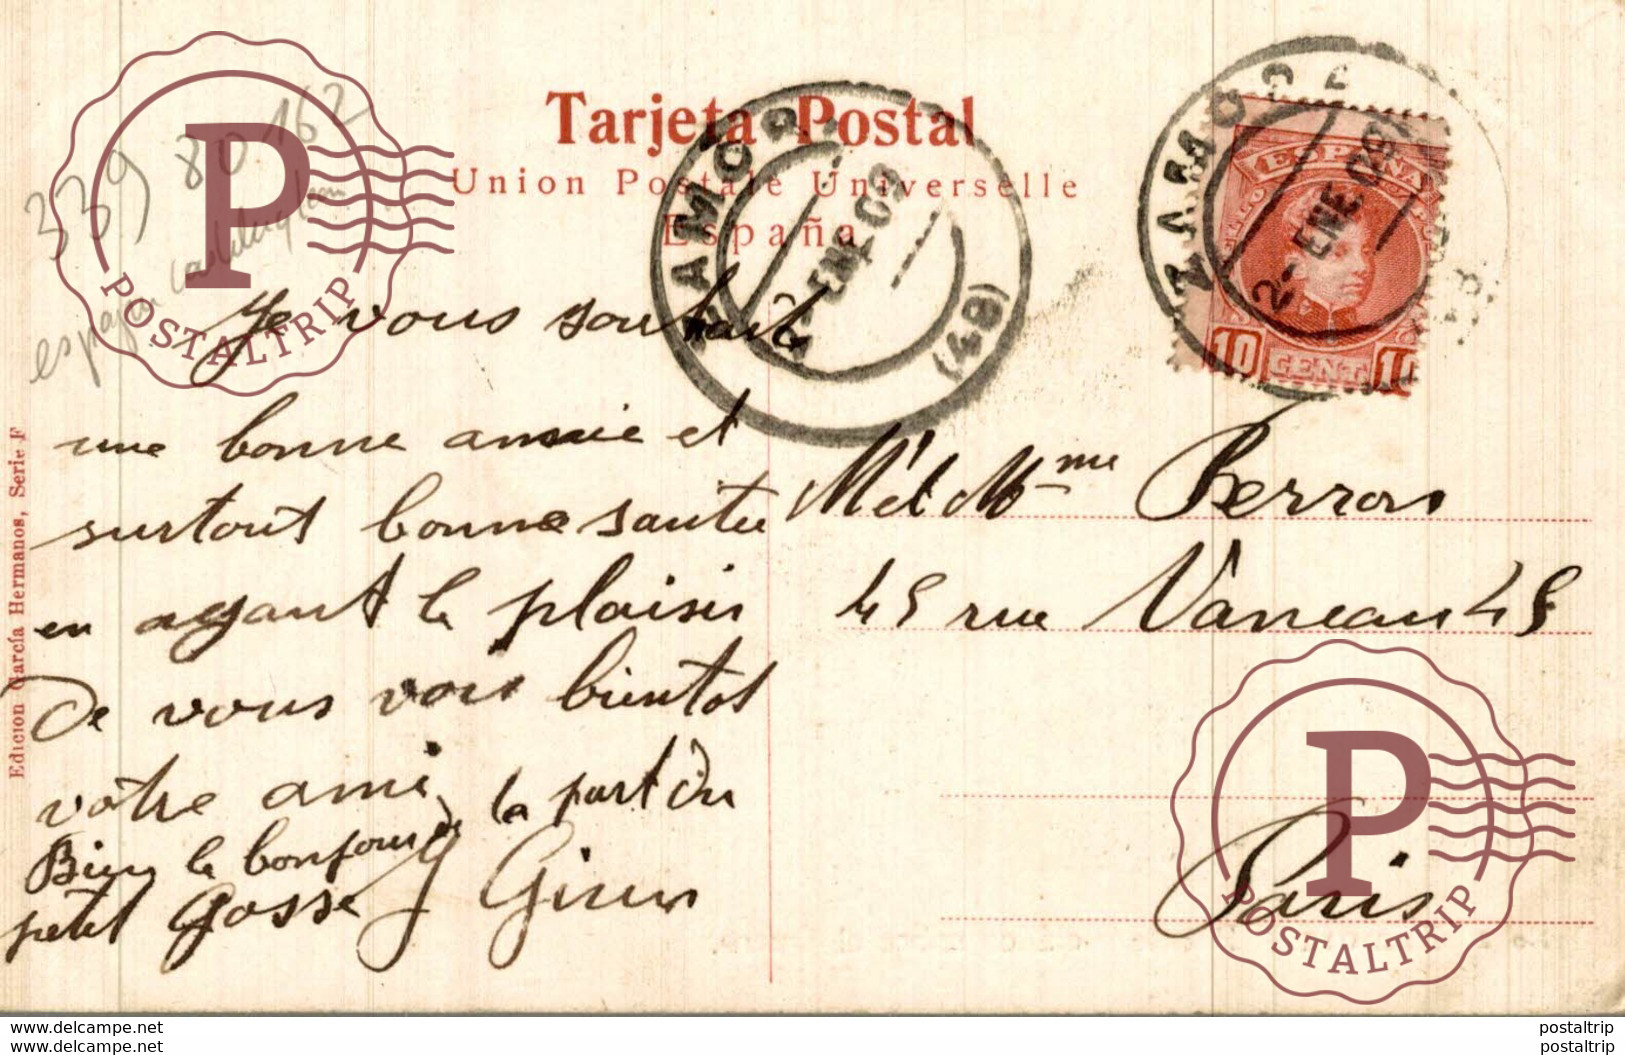 Tarjeta Postal
Union Postale Universelle
España
ZAMORA
2- ENE 09
(49)
ZAMORA
2- ENE 09
ESPAÑA
10 CENT 10
339 80 162
españa
P
POSTALTRIP
Edicion García Hermanos, Serie F
Je vous souhaite
une bonne année et
surtout bonne santée
en ayant le plaisir
de vous voir bientot
votre ami
Bien le bonjour de la part du
petit Gosse
M et Mme
45 rue Vaneau 45
Paris
P
POSTALTRIP
www.delcampe.net
postaltrip
www.delcampe.com
postaltrip